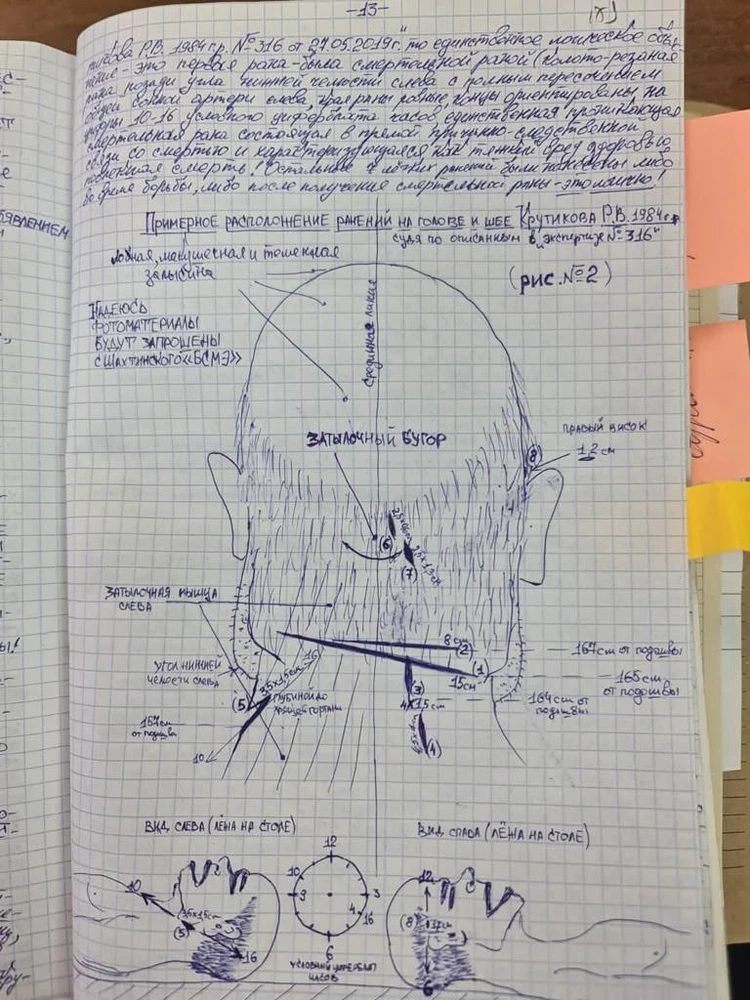 -13-
Р.В. 1984 г.р. №316 от 27.05.2019г." то единственное логическое объяс-
нение - это первая рана - была смертельной раной (колото-резаная
рана позади угла нижней челюсти слева с полным пересечением
общей сонной артери слева, края раны ровные, концы ориентированы на
цифры 10-16 условного циферблата часов единственная проникающая
смертельная рана состоящая в прямой причинно-следственной
связи со смертью и характеризующаяся как тяжкий вред здоровью
повлёкшая смерть! Остальные 7 лёгких ранений были нанесены либо
во время борьбы, либо после получения смертельной раны - это логично!
Примерное расположение ранений на голове и шее Крутикова Р.В. 1984 г.р.
судя по описанным в "экспертизе №316"
Лобная, макушечная и теменная
залысина
(рис. №2)
Надеюсь
фотоматериалы
будут запрошены
с Шахтинского «БСМЭ»
Срединная линия
Затылочный бугор
Правый висок
(8)
1,2 см
(6)
(7)
Затылочная мышца
слева
8 см
(2)
167 см от подошвы
(1)
15 см
165 см
от подошвы
164 см от
подошвы
Угол нижней
челюсти слева
3,5х1,5см
16
(5)
глубиной до
хрящей гортани
(3)
4х1,5см
(4)
157см
от подошвы
10
Вид слева (лёжа на столе)
Вид справа (лёжа на столе)
12
10
9
3
4
16
6
Условный циферблат
часов
10
3,5х1,5см
(5)
16
12
(8)
6